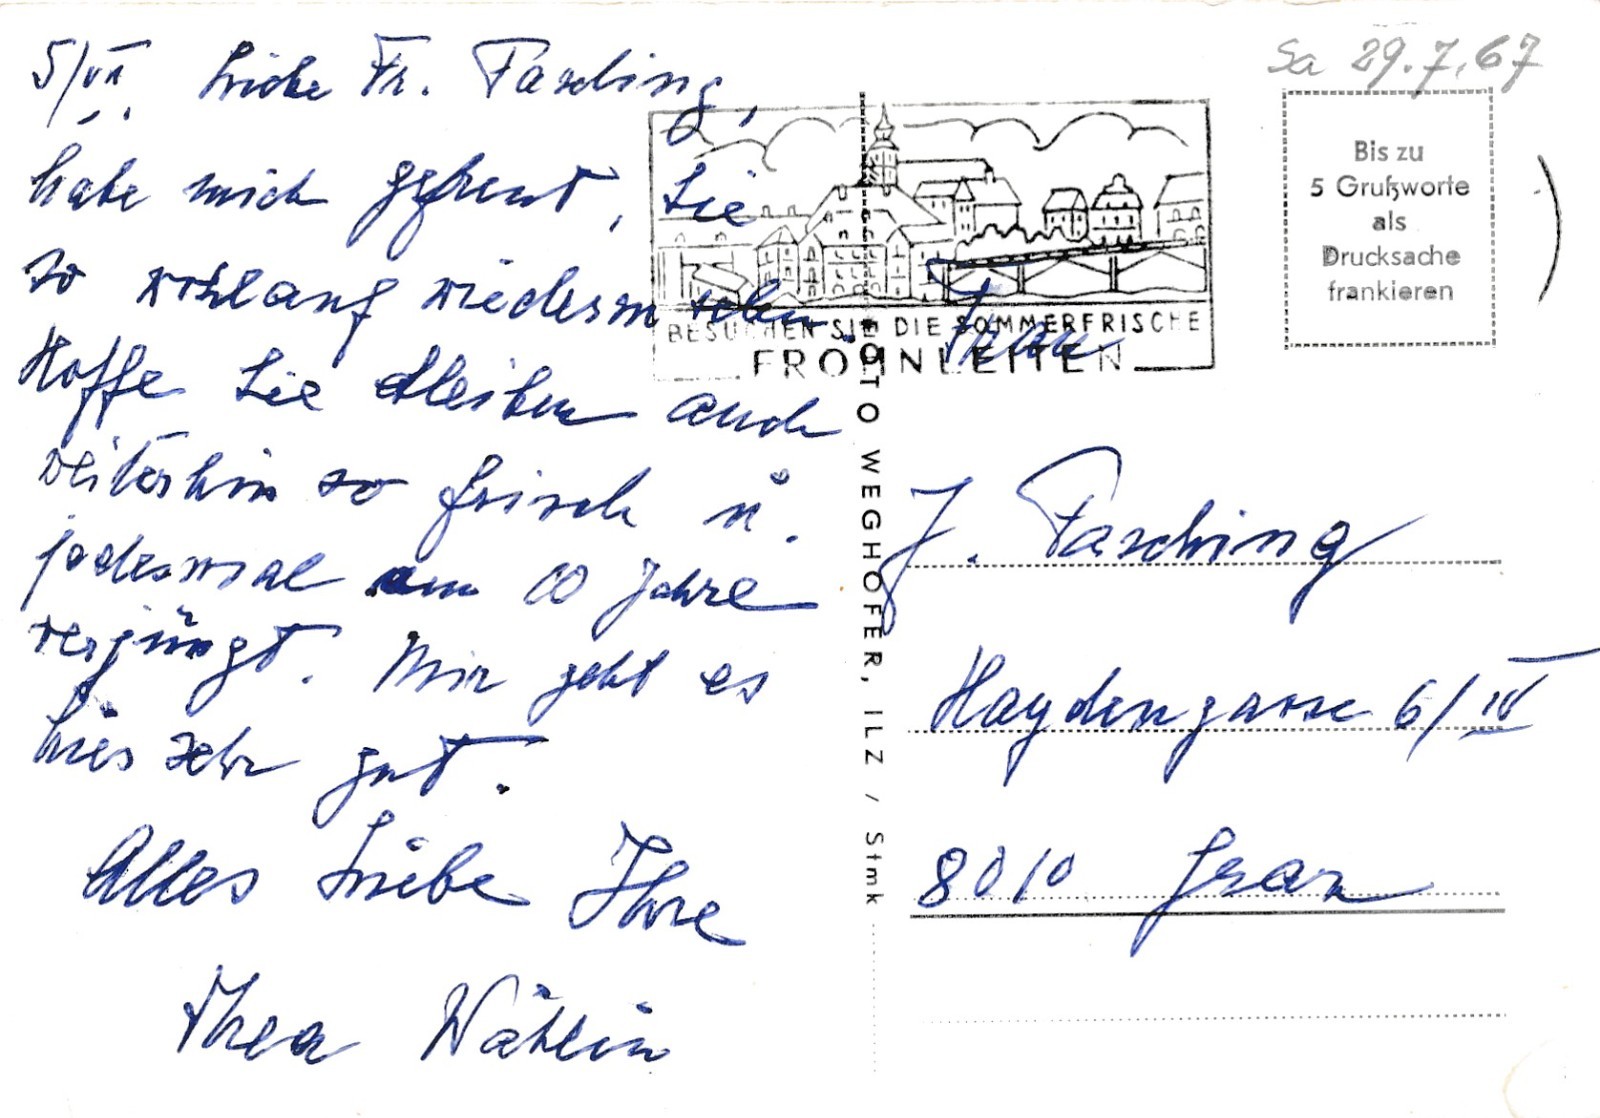 5/VII. Liebe Fr. Fasching,
habe mich gefreut, Sie
so wohlauf wiederzusehen.
Hoffe Sie bleiben auch
weiterhin so frisch u.
jedesmal um 10 Jahre
verjüngt. Mir geht es
hier sehr gut.
Alles Liebe Ihre
Thea
BESUCHEN SIE DIE SOMMERFRISCHE
FROHNLEITEN
FOTO WEGHOFER, ILZ / Stmk
Sa 29.7.67
Bis zu
5 Grußworte
als
Drucksache
frankieren
Frau
J. Fasching
Haydngasse 6/IV
8010 Graz